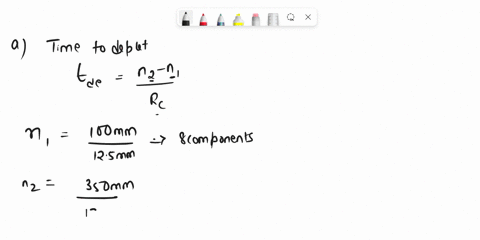 a) Time to deplet
t_de = n₂-n₁ / R_c
n₁ = 100mm / 12.5mm → 8components
n₂ = 350mm / 1